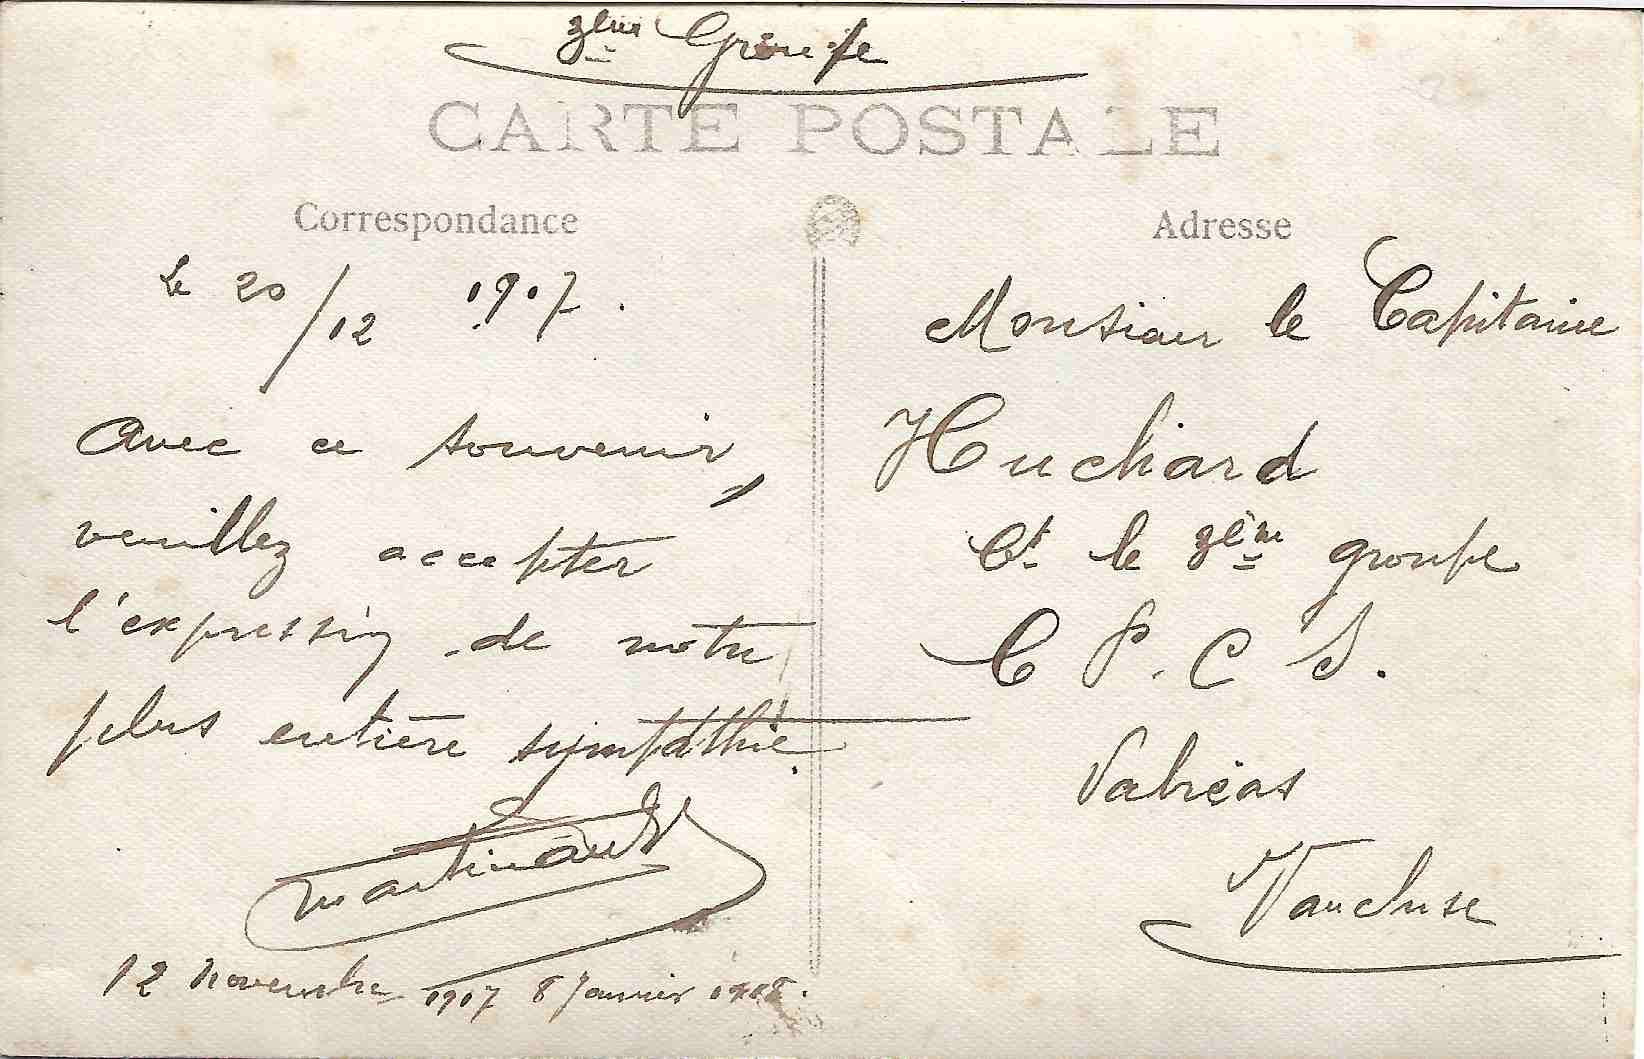 3ème Groupe
CARTE POSTALE
Correspondance
Le 20/12 1917.
Avec ce souvenir,
veuillez accepter
l'expression de notre
plus entière sympathie.
Martinault
12 novembre 1917 8 Janvier 1918.
Adresse
Monsieur le Capitaine
Huchard
Ct le 3ème groupe
C P. C S.
Valréas
Vaucluse